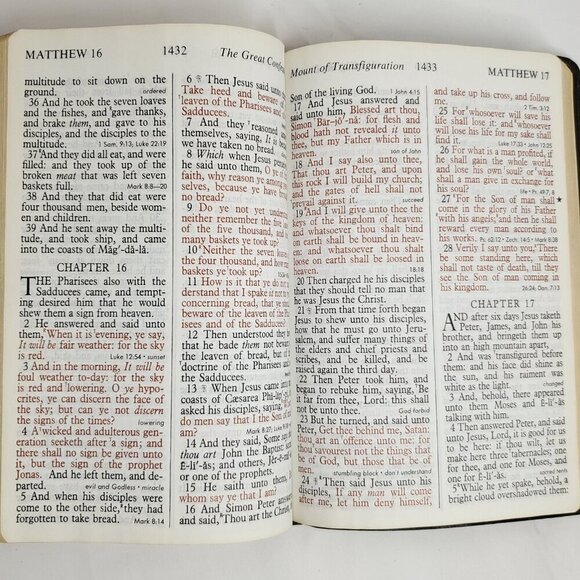 MATTHEW 16
1432
The Great Confess
multitude to sit down on the
ground. ordered
36 And he took the seven loaves
and the fishes, and gave thanks,
and brake them, and gave to his
disciples, and the disciples to the
multitude. 1 Sam. 9:13, Luke 22:19
37 And they did all eat, and were
filled: and they took up of the
broken meat that was left seven
baskets full. Mark 8:8–20
38 And they that did eat were
four thousand men, beside women
and children.
39 And he sent away the multi-
tude, and took ship, and came
into the coasts of Măg′-dȧ-lȧ.
CHAPTER 16
THE Pharisees also with the
Sadducees came, and tempt-
ing desired him that he would
shew them a sign from heaven.
2 He answered and said unto
them, When it is evening, ye say,
It will be fair weather: for the sky
is red. Luke 12:54 • sunset
3 And in the morning, It will be
foul weather to-day: for the sky is
red and lowering. O ye hypo-
crites, ye can discern the face of
the sky; but can ye not discern
the signs of the times? lowering
4 A wicked and adulterous gen-
eration seeketh after a sign; and
there shall no sign be given unto
it, but the sign of the prophet
Jonas. And he left them, and de-
parted. evil and Godless • miracle
5 And when his disciples were
come to the other side, they had
forgotten to take bread. Mark 8:14
6 Then Jesus said unto
Take heed and beware of
leaven of the Pharisees and
Sadducees.
7 And they reasoned
themselves, saying, It is
we have taken no bread.
8 Which when Jesus per
he said unto them, O ye of
faith, why reason ye among
selves, because ye have
no bread?
9 Do ye not yet under
neither remember the five
of the five thousand, and
many baskets ye took up?
10 Neither the seven
the four thousand, and how
baskets ye took up?
11 How is it that ye do not
derstand that I spake it not to
concerning bread, that ye
beware of the leaven of the
sees and of the Sadducees?
12 Then understood they
that he bade them not beware
the leaven of bread, but of
doctrine of the Pharisees and
the Sadducees.
13 When Jesus came into
coasts of Cæsarea Phi-lip
asked his disciples, saying,
do men say that I the Son of
am?
14 And they said, Some say
thou art John the Baptist:
and E-lī′-ăs; and others, Jĕr-e
or one of the prophets.
15 He saith unto them,
whom say ye that I am?
16 And Simon Peter answered
and said, Thou art the Christ,
Mount of Transfiguration
1433
MATTHEW 17
Son of the living God. 1 John 4:15
17 And Jesus answered and
said unto him, Blessed art thou,
Simon Bär-jō′-nȧ: for flesh and
blood hath not revealed it unto
thee, but my Father which is in
heaven.
18 And I say also unto thee,
That thou art Peter, and upon
this rock I will build my church;
and the gates of hell shall not
prevail against it. succeed
19 And I will give unto thee the
keys of the kingdom of heaven:
and whatsoever thou shalt bind
on earth shall be bound in
heaven: and whatsoever thou
shalt loose on earth shall be
loosed in heaven. 18:18
20 Then charged he his disciples
that they should tell no man that
he was Jesus the Christ.
21 From that time forth began
Jesus to shew unto his disciples,
how that he must go unto Jeru-
salem, and suffer many things
of the elders and chief priests and
scribes, and be killed, and be
raised again the third day.
22 Then Peter took him, and
began to rebuke him, saying, Be
it far from thee, Lord: this shall
not be unto thee. God forbid
23 But he turned, and said unto
Peter, Get thee behind me, Satan:
thou art an offence unto me: for
thou savourest not the things that
be of God, but those that be of
men. stumbling block • don't understand
24 Then said Jesus unto his
disciples, If any man will come
after me, let him deny himself,
and take up his cross, and follow
me. 2 Tim. 3:12
25 For whosoever will save his
life shall lose it: and whosoever
will lose his life for my sake shall
find it. Luke 17:33 • John 12:25
26 For what is a man profited, if
he shall gain the whole world,
and lose his own soul? or what
shall a man give in exchange for
his soul? life • Ps. 49:7, 8
27 For the Son of man shall
come in the glory of his Father
with his angels; and then he shall
reward every man according to
his works.
28 Verily I say unto you, There
be some standing here, which
shall not taste of death, till they
see the Son of man coming in his
kingdom. 26:24; Dan. 7:13
CHAPTER 17
AND after six days Jesus taketh
Peter, James, and John his
brother, and bringeth them up
into an high mountain apart,
2 And was transfigured before
them: and his face did shine as
the sun, and his raiment was
white as the light. changed
3 And, behold, there appeared
unto them Moses and E-lī′-ăs
talking with him.
4 Then answered Peter, and said
unto Jesus, Lord, it is good for
us to be here: if thou wilt, let us
make here three tabernacles; one
for thee, and one for Moses, and
one for E-lī′-ăs. sacred tents
5 While he yet spake, behold, a
bright cloud overshadowed them: